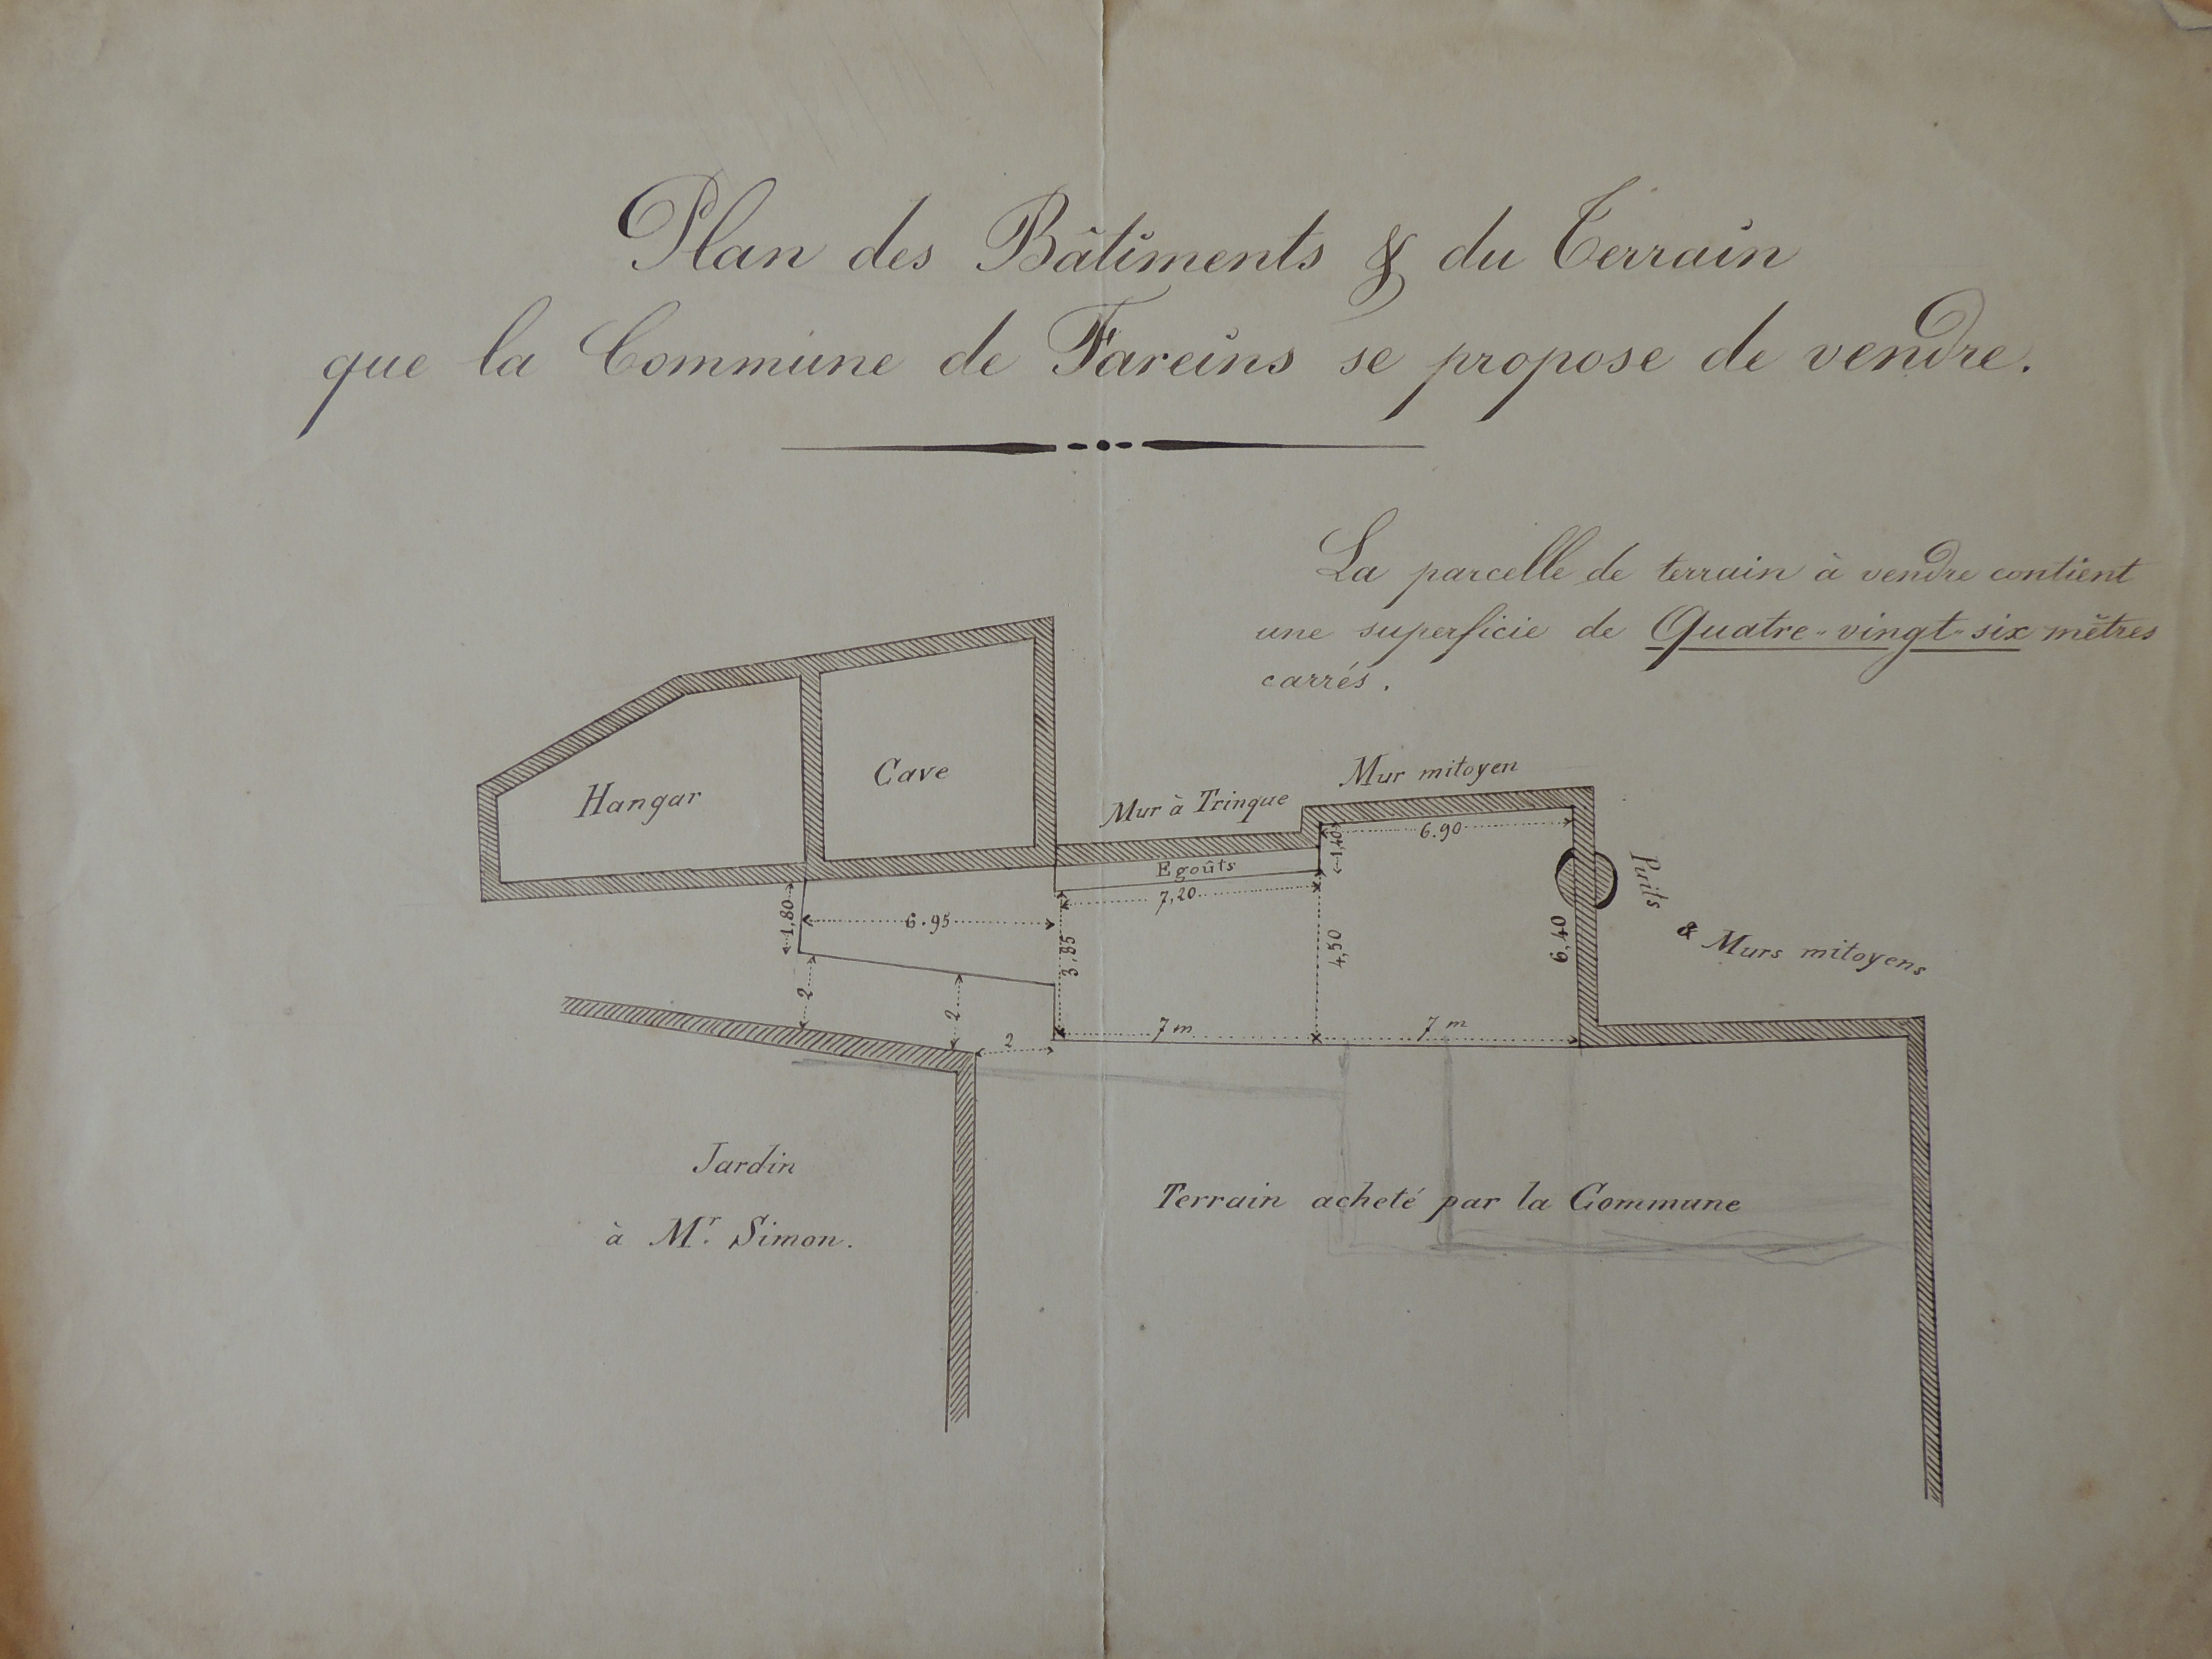 Plan des Bâtiments & du Terrain
que la Commune de Fareins se propose de vendre.
La parcelle de terrain à vendre contient
une superficie de Quatre-vingt-six mètres
carrés.
Mur mitoyen
Mur à Trinque
Cave
Hangar
6.90
1,40
Egoûts
7,20
Puits
& Murs mitoyens
1,80
6.95
3,85
4,50
6,40
2
2
2
7 m
7 m
Jardin
à Mr. Simon.
Terrain acheté par la Commune